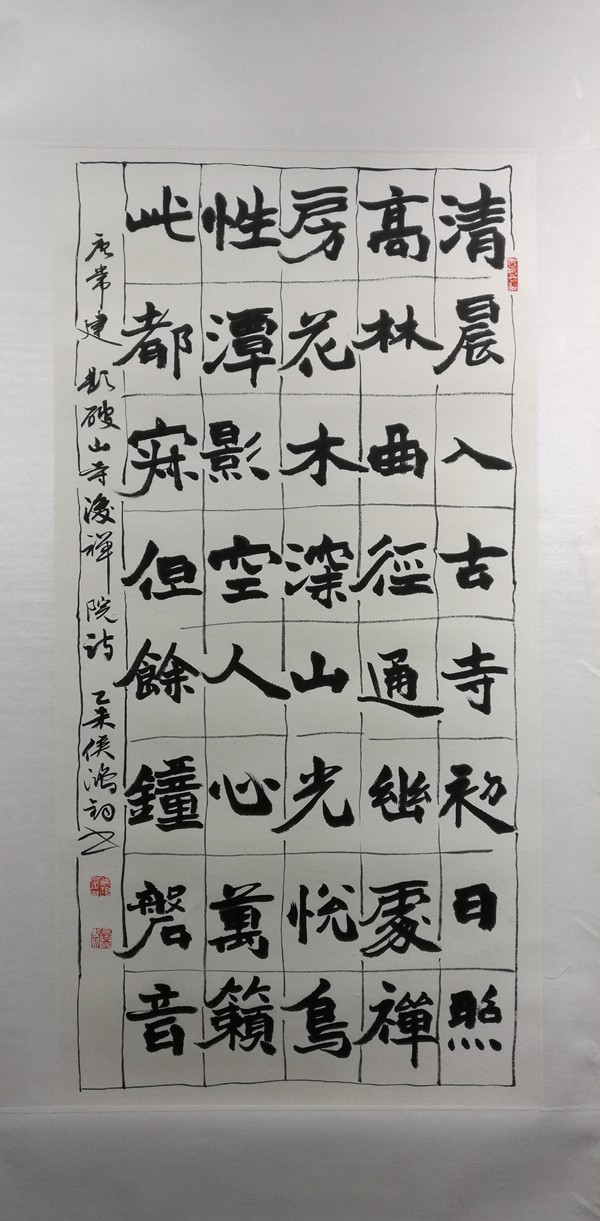 清晨入古寺初日照
高林曲徑通幽處禪
房花木深山光悅鳥
性潭影空人心萬籟
此都寂但餘鐘磬音
唐常建題破山寺後禪院詩 乙未侯鴻詞書